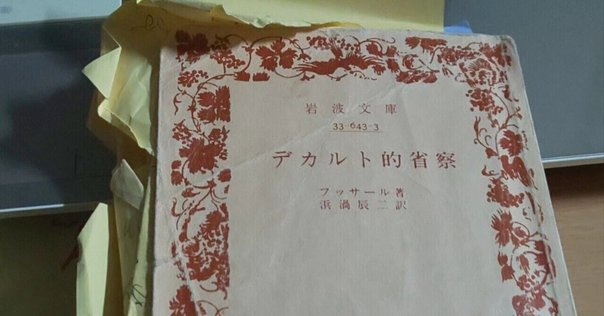 岩波文庫
33-643-3
デカルト的省察
フッサール著
浜渦辰二訳